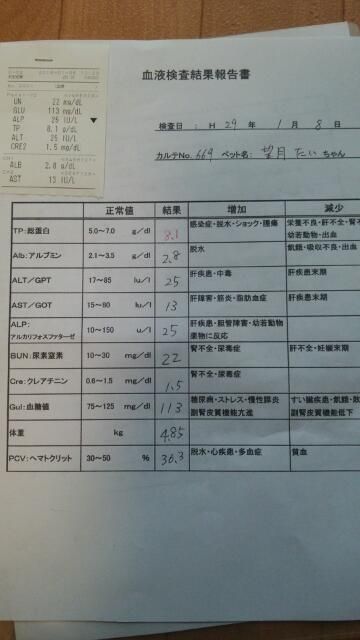 UN 22 mg/dL
GLU 113 mg/dL
ALP 25 IU/L
TP 8.1 g/dL
ALT 25 IU/L
CRE2 1.5 mg/dL
ALB 2.8 g/dL
AST 13 IU/L
血液検査結果報告書
検査日: H 29 年 1月 8日
カルテNo. 669 ペット名: 望月 たい ちゃん
正常値 結果 増加 減少
TP:総蛋白 5.0~7.0 g/dl 8.1 感染症・脱水・ショック・腫瘍 栄養不良・肝不全・腎不
幼若動物・出血
Alb:アルブミン 2.1~3.5 g/dl 2.8 脱水 飢餓・吸収不良・出血
ALT/GPT 17~85 Iu/l 25 肝疾患・中毒 肝疾患末期
AST/GOT 15~80 Iu/l 13 肝障害・筋炎・脂肪血症 肝疾患末期
ALP:
アルカリフォスファターゼ 10~150 u/l 25 肝疾患・胆管障害・幼若動物
薬物に反応
BUN:尿素窒素 10~30 mg/dl 22 腎不全・尿毒症 肝不全・妊娠末期
Cre:クレアチニン 0.6~1.5 mg/dl 1.5 腎不全・尿毒症
Gul:血糖値 75~125 mg/dl 113 糖尿病・ストレス・慢性膵炎 すい臓疾患・飢餓・敗
副腎皮質機能亢進 副腎皮質機能低下
体重 kg 4.85
PCV:ヘマトクリット 30~50 % 36.3 脱水・心疾患・多血症 貧血